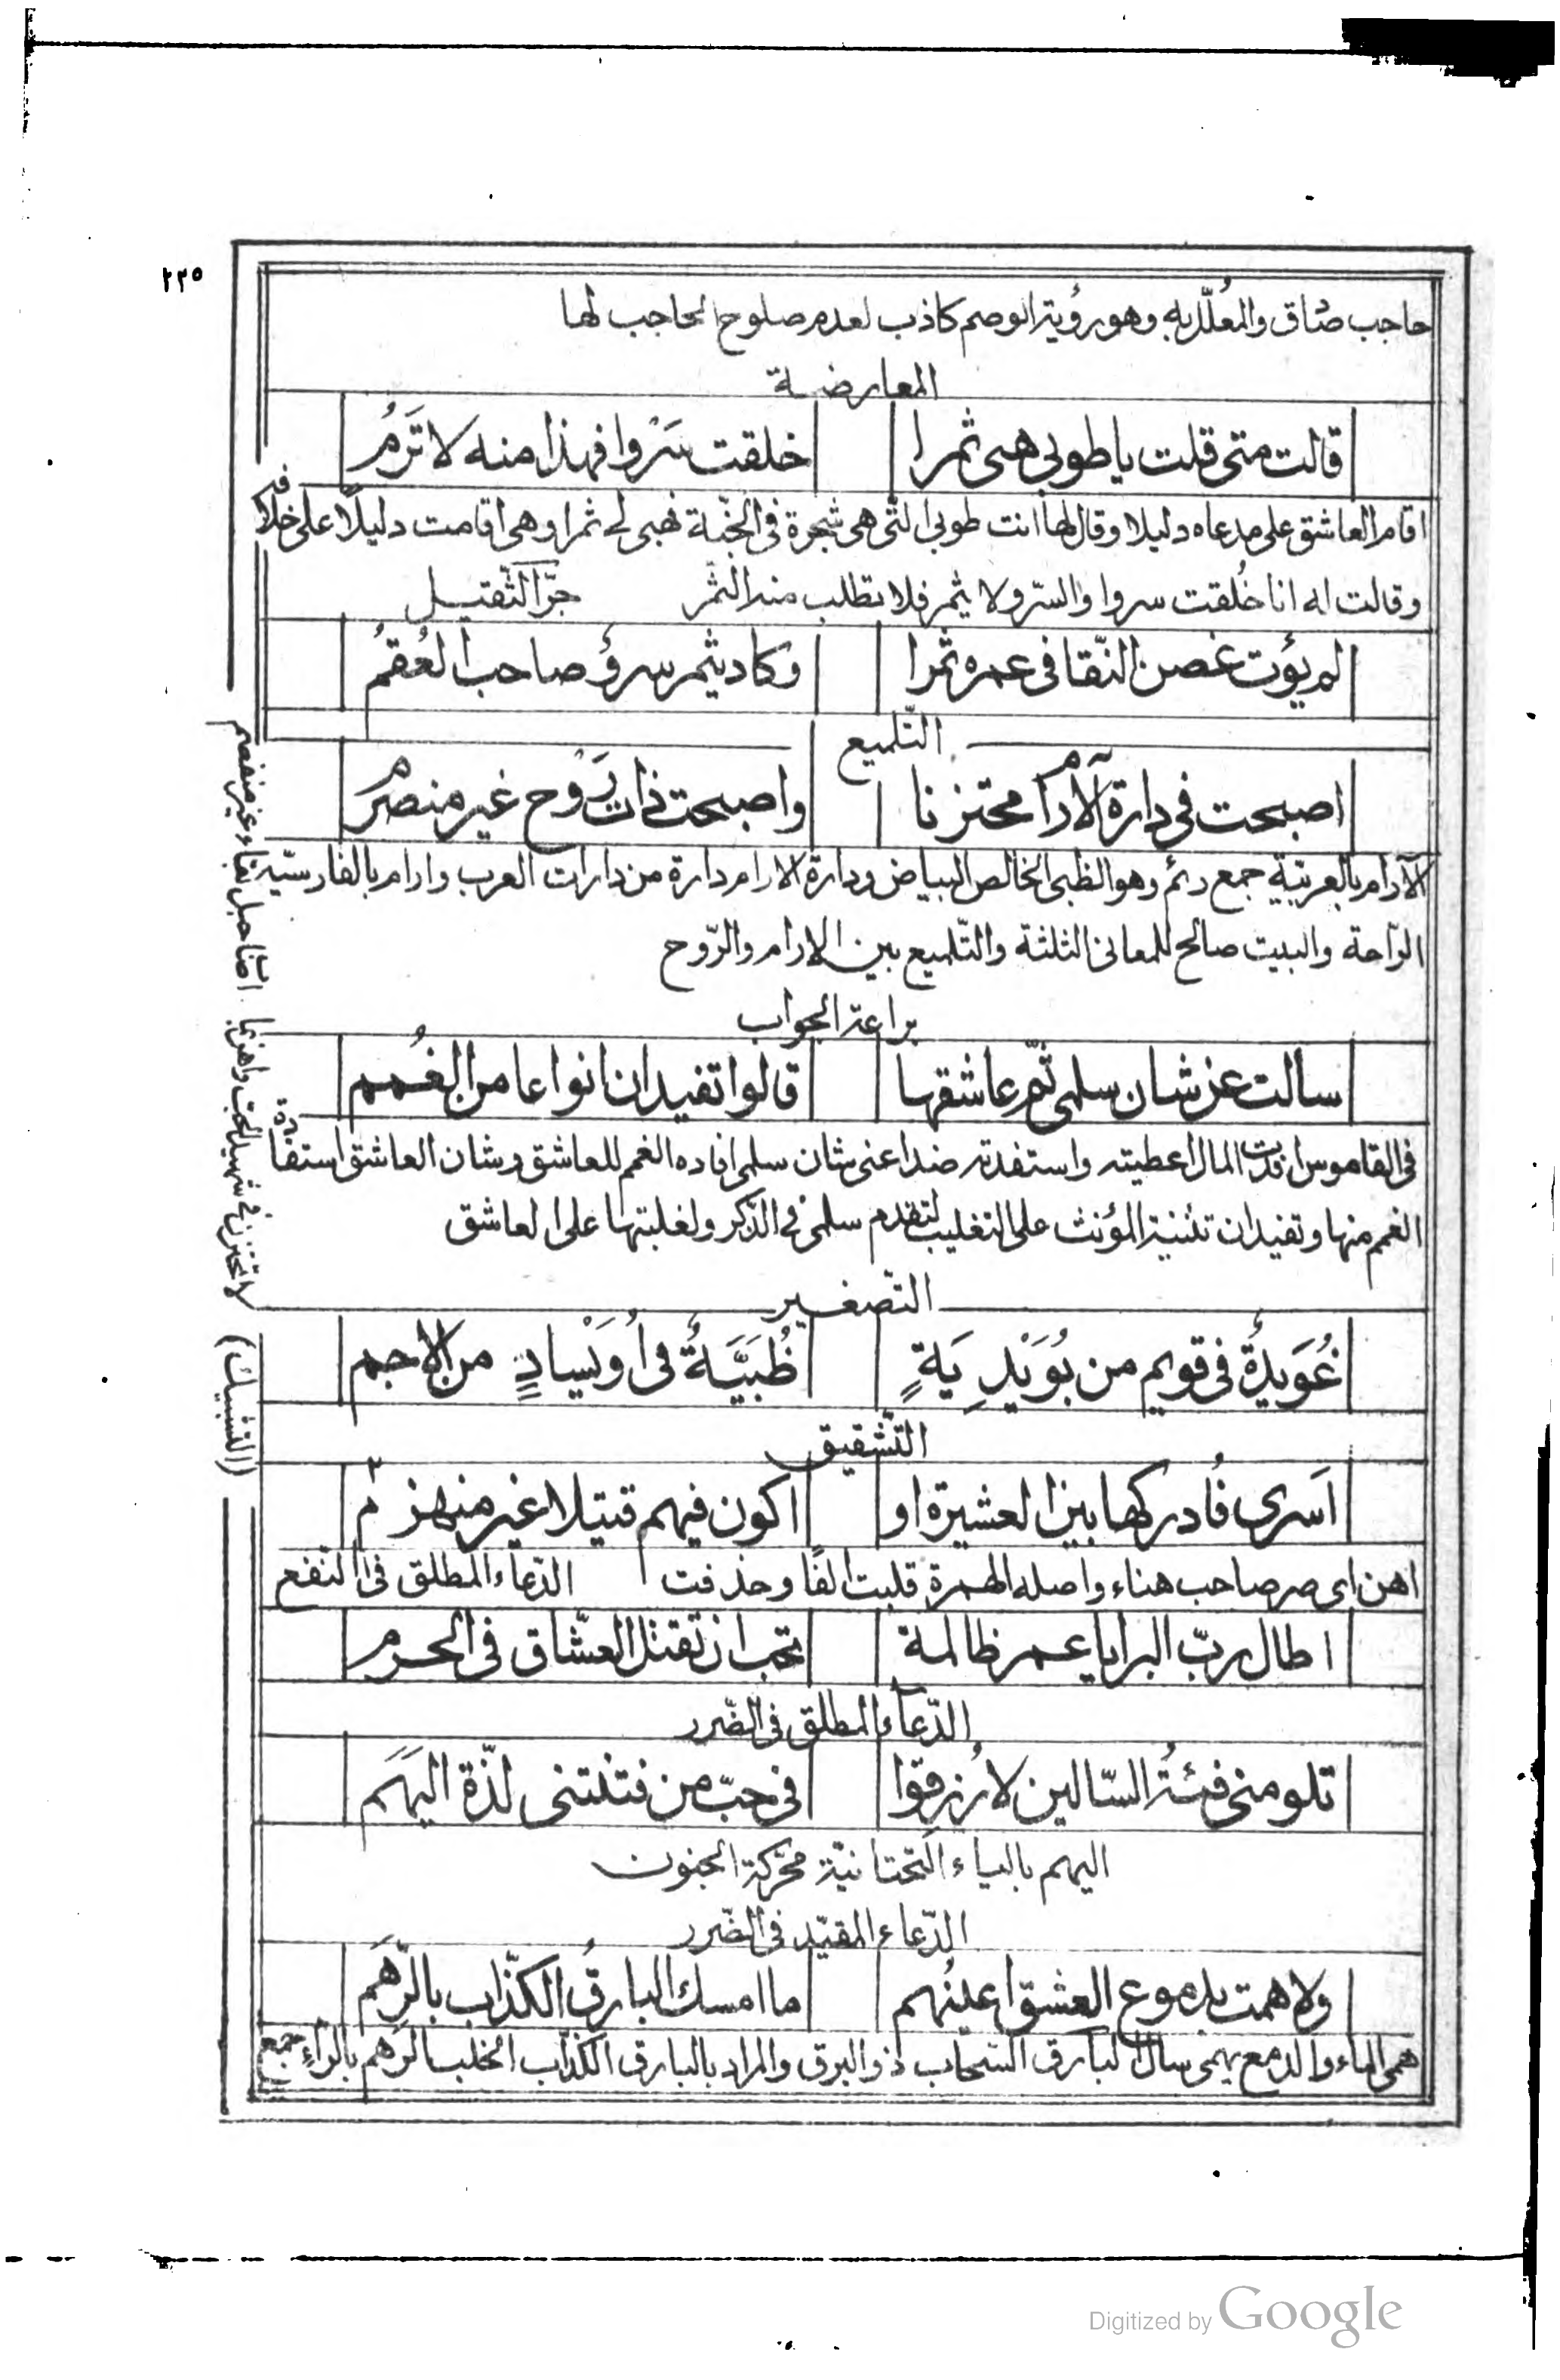 ٢٢٥
حاجب صادق والمعلّل به وهو رؤية الوصم كاذب لعدم صلوح الحاجب لها
المعارضة
قالت متى قلت يا طوبى هبى ثمرا خلقت سَرْوا فهذا منه لا تَرُمُ
اقام العاشق على مدعاه دليلا وقال لها انت طوبى التّى هى شجرة فى الجنّة فهبى لى ثمرا وهى اقامت دليلًا على خلافه
وقالت له انا خُلقت سروا والسّرو لا يثمر فلا تطلب منه الثّمر جرّ الثّقيل
لم يؤت غصن النّقا فى عمره ثمرا وكاد يثمر سروٌ صاحب العُقمُ
التّلميع
اصبحت فى دارة الآرام محتزنا واصبحت ذات رَوْح غير منصرم
الآرام بالعربيّة جمع رئم وهو الظبى الخالص البياض ودارة الارام دارة من دارات العرب وارام بالفارسيّة
الرّاحة والبيت صالح للمعانى الثلثة والتّلميع بين الارام والرّوح
براعة الجواب
سالت عن شان سلمى ثمّ عاشقها قالوا تفيدان انواعا من الغُمم
فى القاموس افدت المال اعطيته واستفدته ضد اعنى شان سلمى افاده الغمم للعاشق وشان العاشق استفادة
الغمم منها وتفيدان تثنية المؤنث على التغليب لتقدم سلمى فى الذّكر ولغلبتها على العاشق
التّصغير
غُوَيدةٌ فى قويم من بُوَيْدِيَةٍ ظُبَيَّةٌ فى اُوَيْسادٍ من الاجم
التّشقيق
اَسرى فاُدركها بين العشيرة او اكون فيهم قتيلا غير منهزم
اهن اى صر صاحب هناء واصله الهمزة قلبت الفًا وحذفت الدّعاء المطلق فى النّفع
اطال ربّ البرايا عمر ظالمة تحب ان تقتل العشّاق فى الحرم
الدّعاء المطلق فى الضّرر
تلومنى فئة السّالين لا رُزقوا فى حبّ من فتنتنى لذّة اليَهَم
اليهم بالياء التّحتانيّة محرّكة الجنون
الدّعاء المقيّد فى الضّرر
ولا همت بدموع العشق اعينُهم ما امسك البارقُ الكذّاب بالرِّهَم
همى الماء والدمع يهمى سال البارق السّحاب ذو البرق والمراد بالبارق الكذّاب الخلب الرهم بالرّاء جمع
(التشبيك)
لا تحتزن فى شهيد الحب واهن بما اصاب حبل بقاء غير منفصم
Digitized by Google